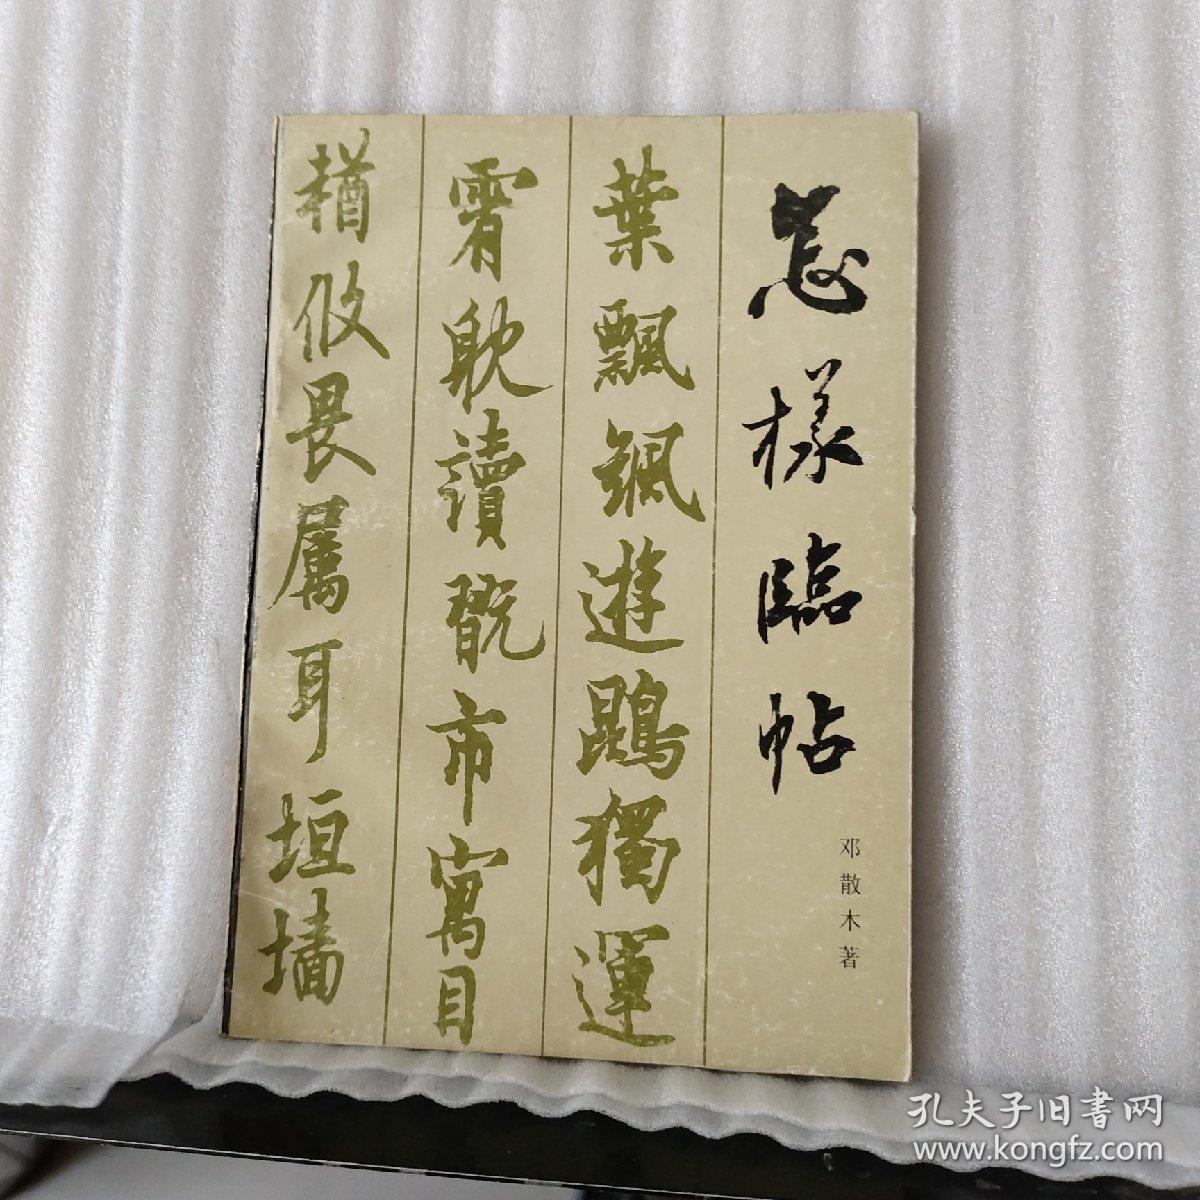 怎樣臨帖
邓散木著
葉飄颻遊鵾獨運
霄躭讀翫市寓目
輶攸畏属耳垣墙
孔夫子旧书网
www.kongfz.com